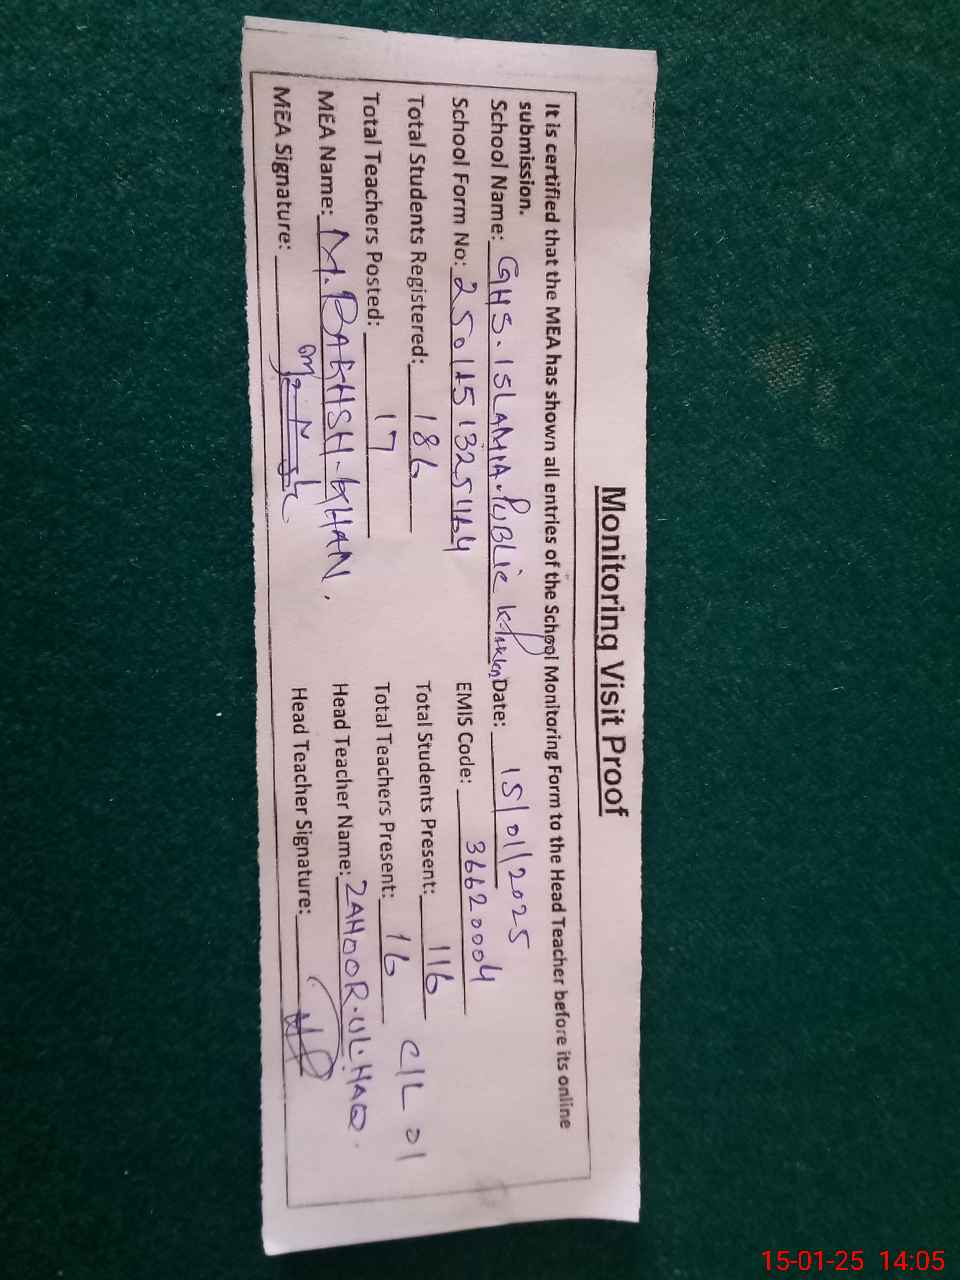 Monitoring Visit Proof
It is certified that the MEA has shown all entries of the School Monitoring Form to the Head Teacher before its online
submission.
School Name: GHS. ISLAMIA. PUBLIC Date: 15/01/2025
School Form No: EMIS Code: 36620004
Total Students Registered: 186 Total Students Present: 116
Total Teachers Posted: 17 Total Teachers Present: 16 C/L 01
MEA Name: M. BAKHSH. KHAN. Head Teacher Name: ZAHOOR. UL. HAQ.
MEA Signature: Head Teacher Signature:
15-01-25 14:05